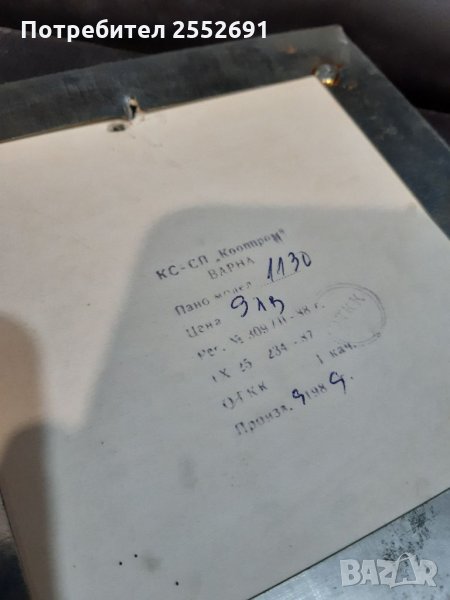 Потребител 2552691
КС-СП „Коопром"
ВАРНА
Пано модел 1130
Цена 9лв
Рег. № 309/II-88 г.
TX 25 234-87
ОТКК I кач.
Произв. 9 198 9.
ОТКК
BAZAR